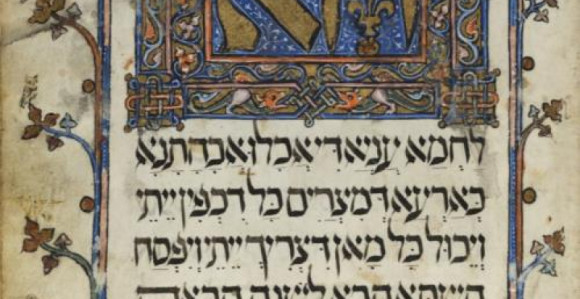 הא
לַחְמָא עַנְיָא דִּי אֲכַלוּ אַבְהָתָנָא
בְּאַרְעָא דְמִצְרַיִם כָּל דִּכְפִין יֵיתֵי
וְיֵכוּל כָּל מָאן דִּצְרִיךְ יֵיתֵי וְיִפְסַח
השתא הכא לשנה הבאה